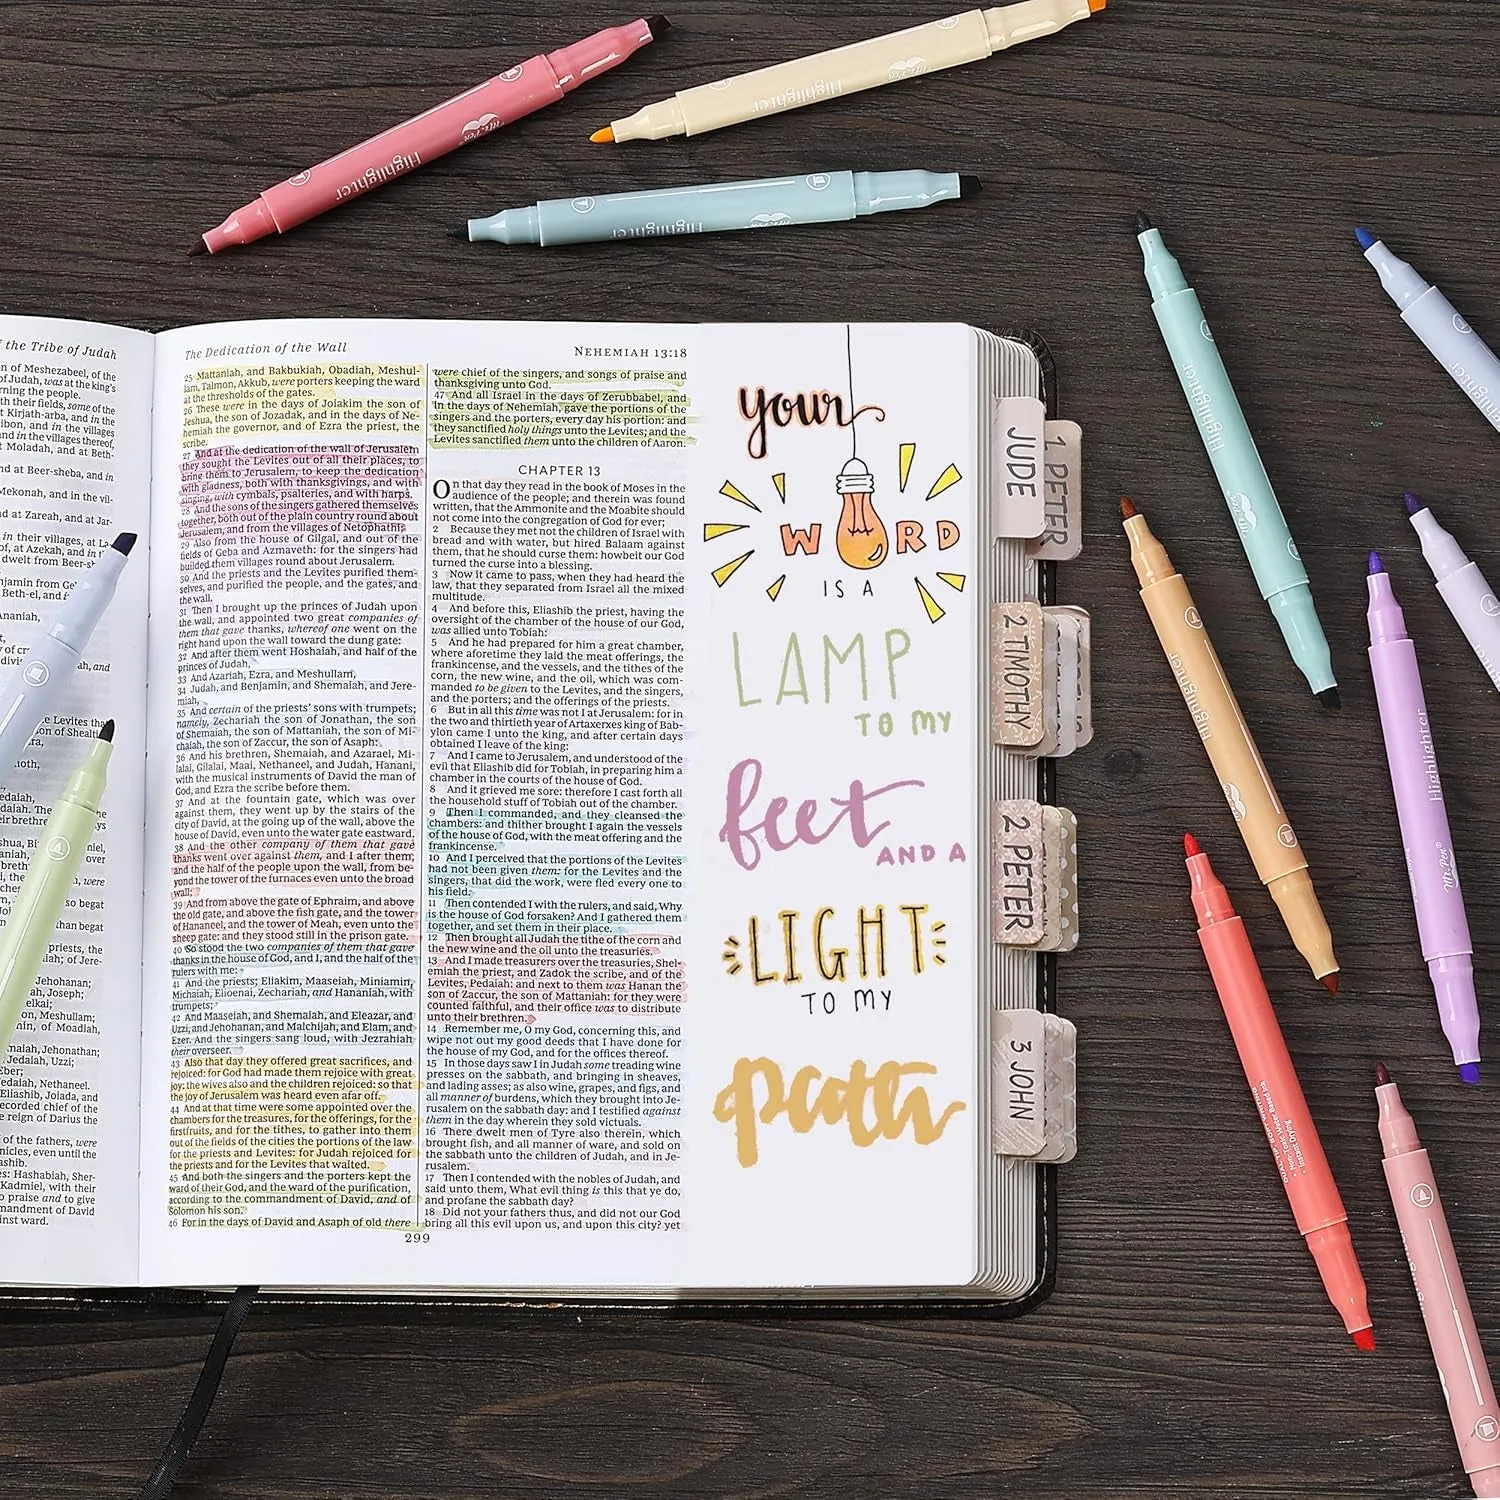 f the Tribe of Judah
The Dedication of the Wall
NEHEMIAH 13:18
25 Mattaniah, and Bakbukiah, Obadiah, Meshul-
lam, Talmon, Akkub, were porters keeping the ward
at the thresholds of the gates.
26 These were in the days of Joiakim the son of
Jeshua, the son of Jozadak, and in the days of Ne-
hemiah the governor, and of Ezra the priest, the
scribe.
27 And at the dedication of the wall of Jerusalem
they sought the Levites out of all their places, to
bring them to Jerusalem, to keep the dedication
with gladness, both with thanksgivings, and with
singing, with cymbals, psalteries, and with harps.
28 And the sons of the singers gathered themselves
together, both out of the plain country round about
Jerusalem, and from the villages of Netophathi;
29 Also from the house of Gilgal, and out of the
fields of Geba and Azmaveth: for the singers had
builded them villages round about Jerusalem.
30 And the priests and the Levites purified them-
selves, and purified the people, and the gates, and
the wall.
31 Then I brought up the princes of Judah upon
the wall, and appointed two great companies of
them that gave thanks, whereof one went on the
right hand upon the wall toward the dung gate:
32 And after them went Hoshaiah, and half of the
princes of Judah,
33 And Azariah, Ezra, and Meshullam,
34 Judah, and Benjamin, and Shemaiah, and Jere-
miah,
35 And certain of the priests' sons with trumpets;
namely, Zechariah the son of Jonathan, the son
of Shemaiah, the son of Mattaniah, the son of Mi-
chaiah, the son of Zaccur, the son of Asaph:
36 And his brethren, Shemaiah, and Azarael, Mi-
lalai, Gilalai, Maai, Nethaneel, and Judah, Hanani,
with the musical instruments of David the man of
God, and Ezra the scribe before them.
37 And at the fountain gate, which was over
against them, they went up by the stairs of the
city of David, at the going up of the wall, above the
house of David, even unto the water gate eastward.
38 And the other company of them that gave
thanks went over against them, and I after them,
and the half of the people upon the wall, from be-
yond the tower of the furnaces even unto the broad
wall;
39 And from above the gate of Ephraim, and above
the old gate, and above the fish gate, and the tower
of Hananeel, and the tower of Meah, even unto the
sheep gate: and they stood still in the prison gate.
40 So stood the two companies of them that gave
thanks in the house of God, and I, and the half of the
rulers with me:
41 And the priests; Eliakim, Maaseiah, Miniamin,
Michaiah, Elioenai, Zechariah, and Hananiah, with
trumpets;
42 And Maaseiah, and Shemaiah, and Eleazar, and
Uzzi, and Jehohanan, and Malchijah, and Elam, and
Ezer. And the singers sang loud, with Jezrahiah
their overseer.
43 Also that day they offered great sacrifices, and
rejoiced: for God had made them rejoice with great
joy: the wives also and the children rejoiced: so that
the joy of Jerusalem was heard even afar off.
44 And at that time were some appointed over the
chambers for the treasures, for the offerings, for the
firstfruits, and for the tithes, to gather into them
out of the fields of the cities the portions of the law
for the priests and Levites: for Judah rejoiced for
the priests and for the Levites that waited.
45 And both the singers and the porters kept the
ward of their God, and the ward of the purification,
according to the commandment of David, and of
Solomon his son.
46 For in the days of David and Asaph of old there
were chief of the singers, and songs of praise and
thanksgiving unto God.
47 And all Israel in the days of Zerubbabel, and
in the days of Nehemiah, gave the portions of the
singers and the porters, every day his portion: and
they sanctified holy things unto the Levites; and the
Levites sanctified them unto the children of Aaron.
CHAPTER 13
On that day they read in the book of Moses in the
audience of the people; and therein was found
written, that the Ammonite and the Moabite should
not come into the congregation of God for ever;
2 Because they met not the children of Israel with
bread and with water, but hired Balaam against
them, that he should curse them: howbeit our God
turned the curse into a blessing.
3 Now it came to pass, when they had heard the
law, that they separated from Israel all the mixed
multitude.
4 And before this, Eliashib the priest, having the
oversight of the chamber of the house of our God,
was allied unto Tobiah:
5 And he had prepared for him a great chamber,
where aforetime they laid the meat offerings, the
frankincense, and the vessels, and the tithes of the
corn, the new wine, and the oil, which was com-
manded to be given to the Levites, and the singers,
and the porters; and the offerings of the priests.
6 But in all this time was not I at Jerusalem: for in
the two and thirtieth year of Artaxerxes king of Bab-
ylon came I unto the king, and after certain days
obtained I leave of the king:
7 And I came to Jerusalem, and understood of the
evil that Eliashib did for Tobiah, in preparing him a
chamber in the courts of the house of God.
8 And it grieved me sore: therefore I cast forth all
the household stuff of Tobiah out of the chamber.
9 Then I commanded, and they cleansed the
chambers: and thither brought I again the vessels
of the house of God, with the meat offering and the
frankincense.
10 And I perceived that the portions of the Levites
had not been given them: for the Levites and the
singers, that did the work, were fled every one to
his field.
11 Then contended I with the rulers, and said, Why
is the house of God forsaken? And I gathered them
together, and set them in their place.
12 Then brought all Judah the tithe of the corn and
the new wine and the oil unto the treasuries.
13 And I made treasurers over the treasuries, Shel-
emiah the priest, and Zadok the scribe, and of the
Levites, Pedaiah: and next to them was Hanan the
son of Zaccur, the son of Mattaniah: for they were
counted faithful, and their office was to distribute
unto their brethren.
14 Remember me, O my God, concerning this, and
wipe not out my good deeds that I have done for
the house of my God, and for the offices thereof.
15 In those days saw I in Judah some treading wine
presses on the sabbath, and bringing in sheaves,
and lading asses; as also wine, grapes, and figs, and
all manner of burdens, which they brought into Je-
rusalem on the sabbath day: and I testified against
them in the day wherein they sold victuals.
16 There dwelt men of Tyre also therein, which
brought fish, and all manner of ware, and sold on
the sabbath unto the children of Judah, and in Je-
rusalem.
17 Then I contended with the nobles of Judah, and
said unto them, What evil thing is this that ye do,
and profane the sabbath day?
18 Did not your fathers thus, and did not our God
bring all this evil upon us, and upon this city? yet
299
your
WORD
IS A
LAMP
TO MY
feet
AND A
LIGHT
TO MY
path
JUDE
1 PETER
2 TIMOTHY
2 PETER
3 JOHN
Highlighter
Mr. Pen
Highlighter
Mr. Pen
Highlighter
Mr. Pen
Highlighter
Highlighter
Highlighter
Highlighter
Mr. Pen